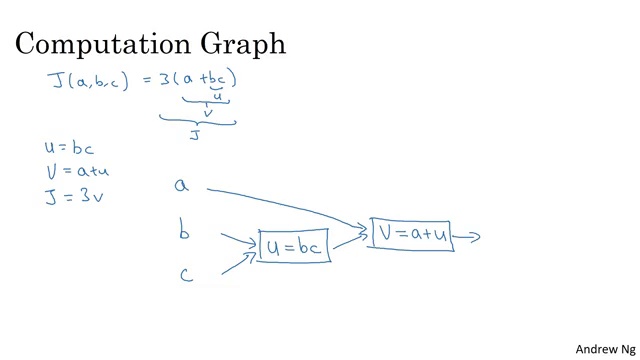 Computation Graph
J(a,b,c) = 3(a+bc)
u
v
J
u = bc
V = a+u
J = 3v
a
b
c
u = bc
V = a+u
Andrew Ng